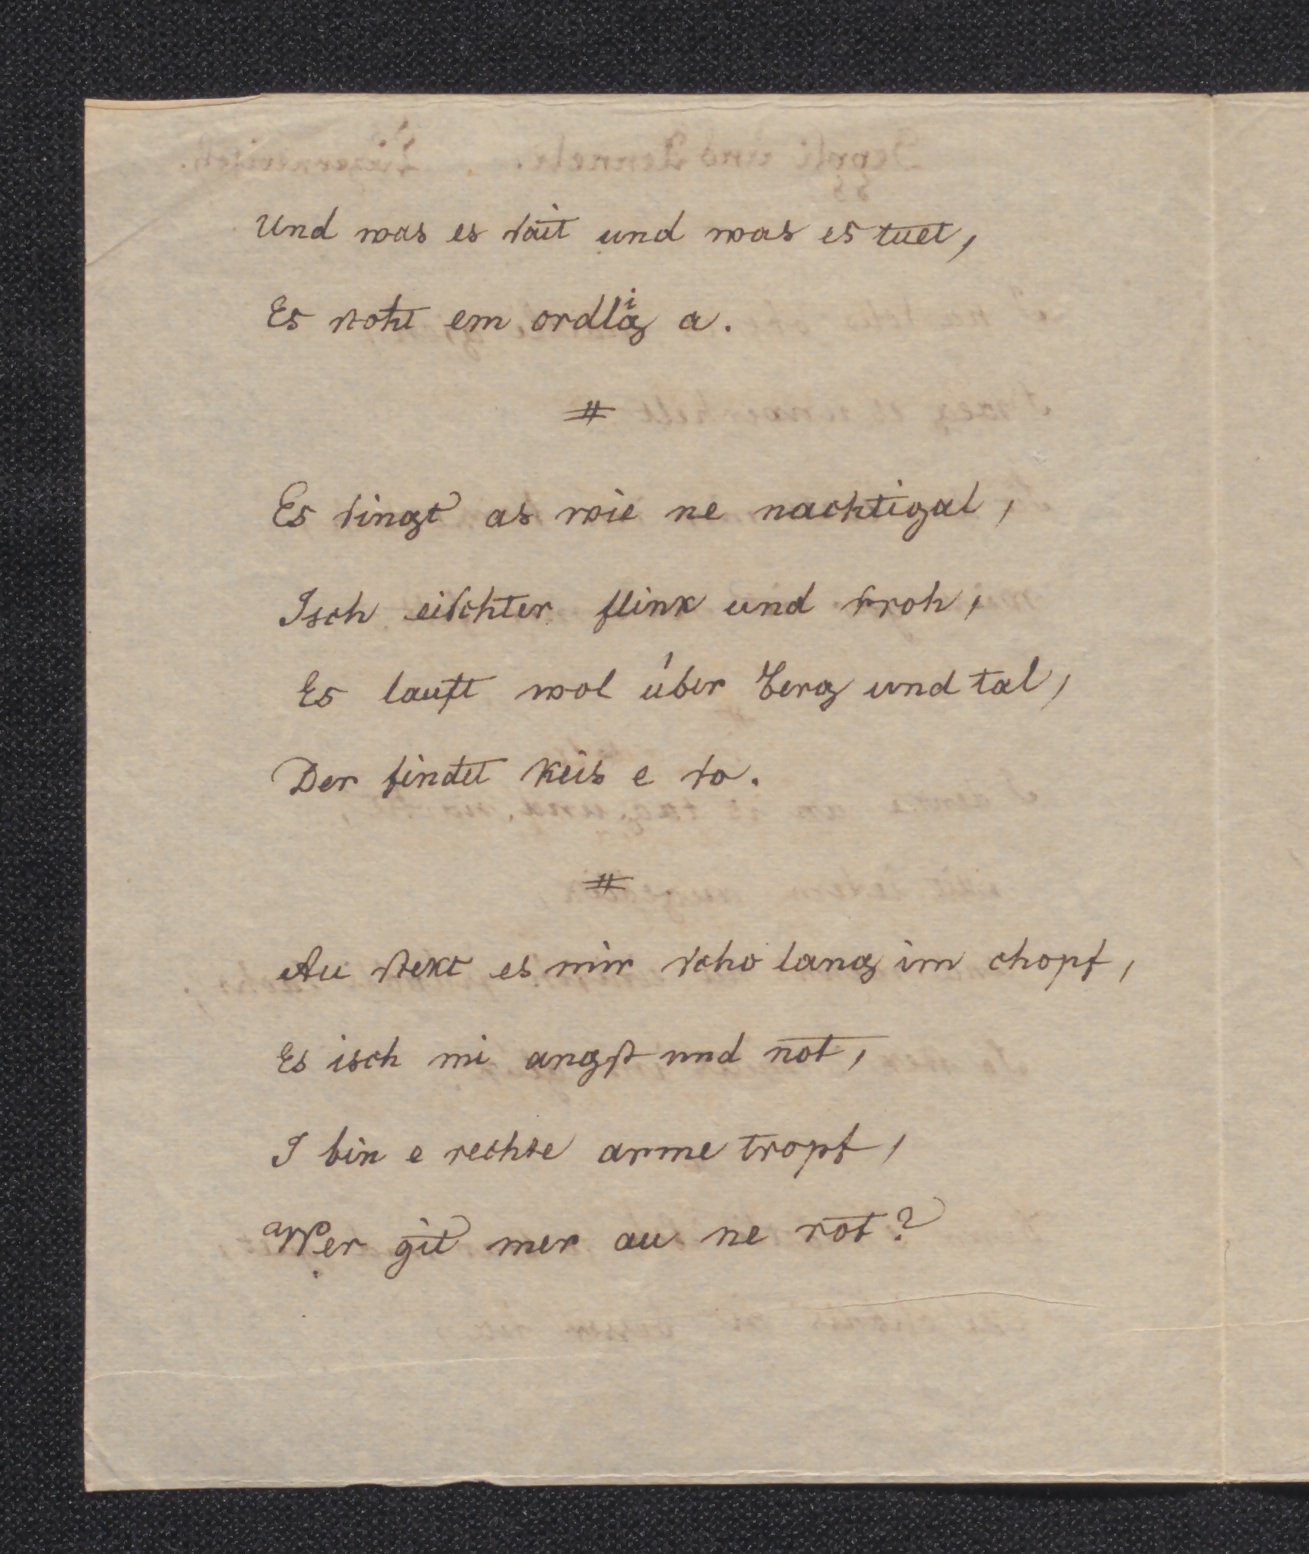 Und was es sait und was es tuet,
Es stoht em ordlig a.
#
Es singt as wie ne nachtigal,
Isch eischter flink und froh,
Es lauft wol über berg und tal,
Der findet keis e so.
#
Au stekt es mir scho lang im chopf,
Es isch mi angst und not,
I bin e rechte arme tropf,
Wer git mer au ne rot?